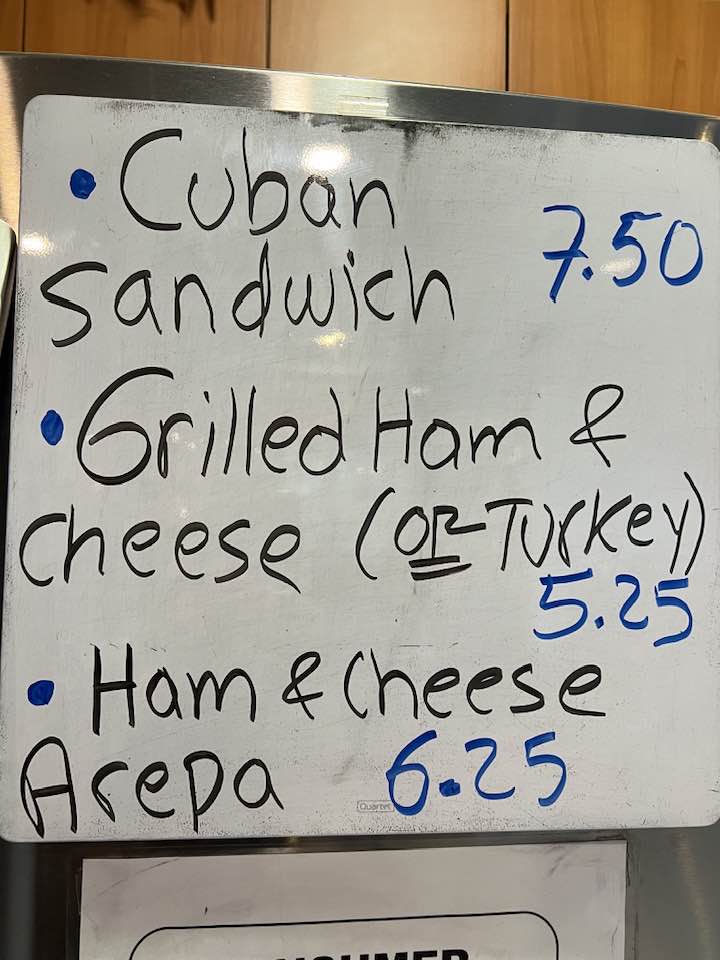 • Cuban
sandwich 7.50
• Grilled Ham &
cheese (OR Turkey)
5.25
• Ham & Cheese
Arepa 6.25
Quartet